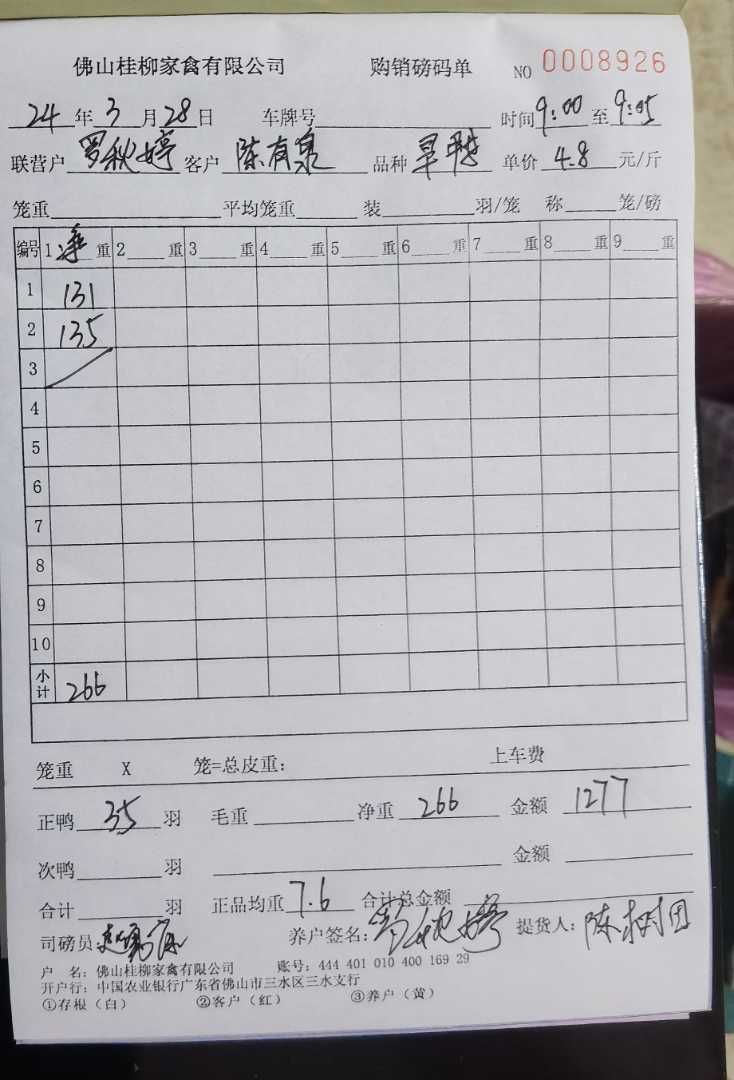 佛山桂柳家禽有限公司 购销磅码单 NO 0008926
24年3月28日 车牌号 时间9:00至9:05
联营户罗秋婷 客户陈有泉 品种旱鸭 单价4.8元/斤
笼重 平均笼重 装 羽/笼 称 笼/磅
编号 1净重 2 重 3 重 4 重 5 重 6 重 7 重 8 重 9 重
1 131
2 135
3
4
5
6
7
8
9
10
小计 266
笼重 X 笼=总皮重: 上车费
正鸭 35 羽 毛重 净重 266 金额 1277
次鸭 羽 金额
合计 羽 正品均重 7.6 合计总金额
司磅员: 养户签名: 提货人: 陈树团
户 名: 佛山桂柳家禽有限公司 账号: 444 401 010 400 169 29
开户行: 中国农业银行广东省佛山市三水区三水支行
①存根(白) ②客户(红) ③养户(黄)